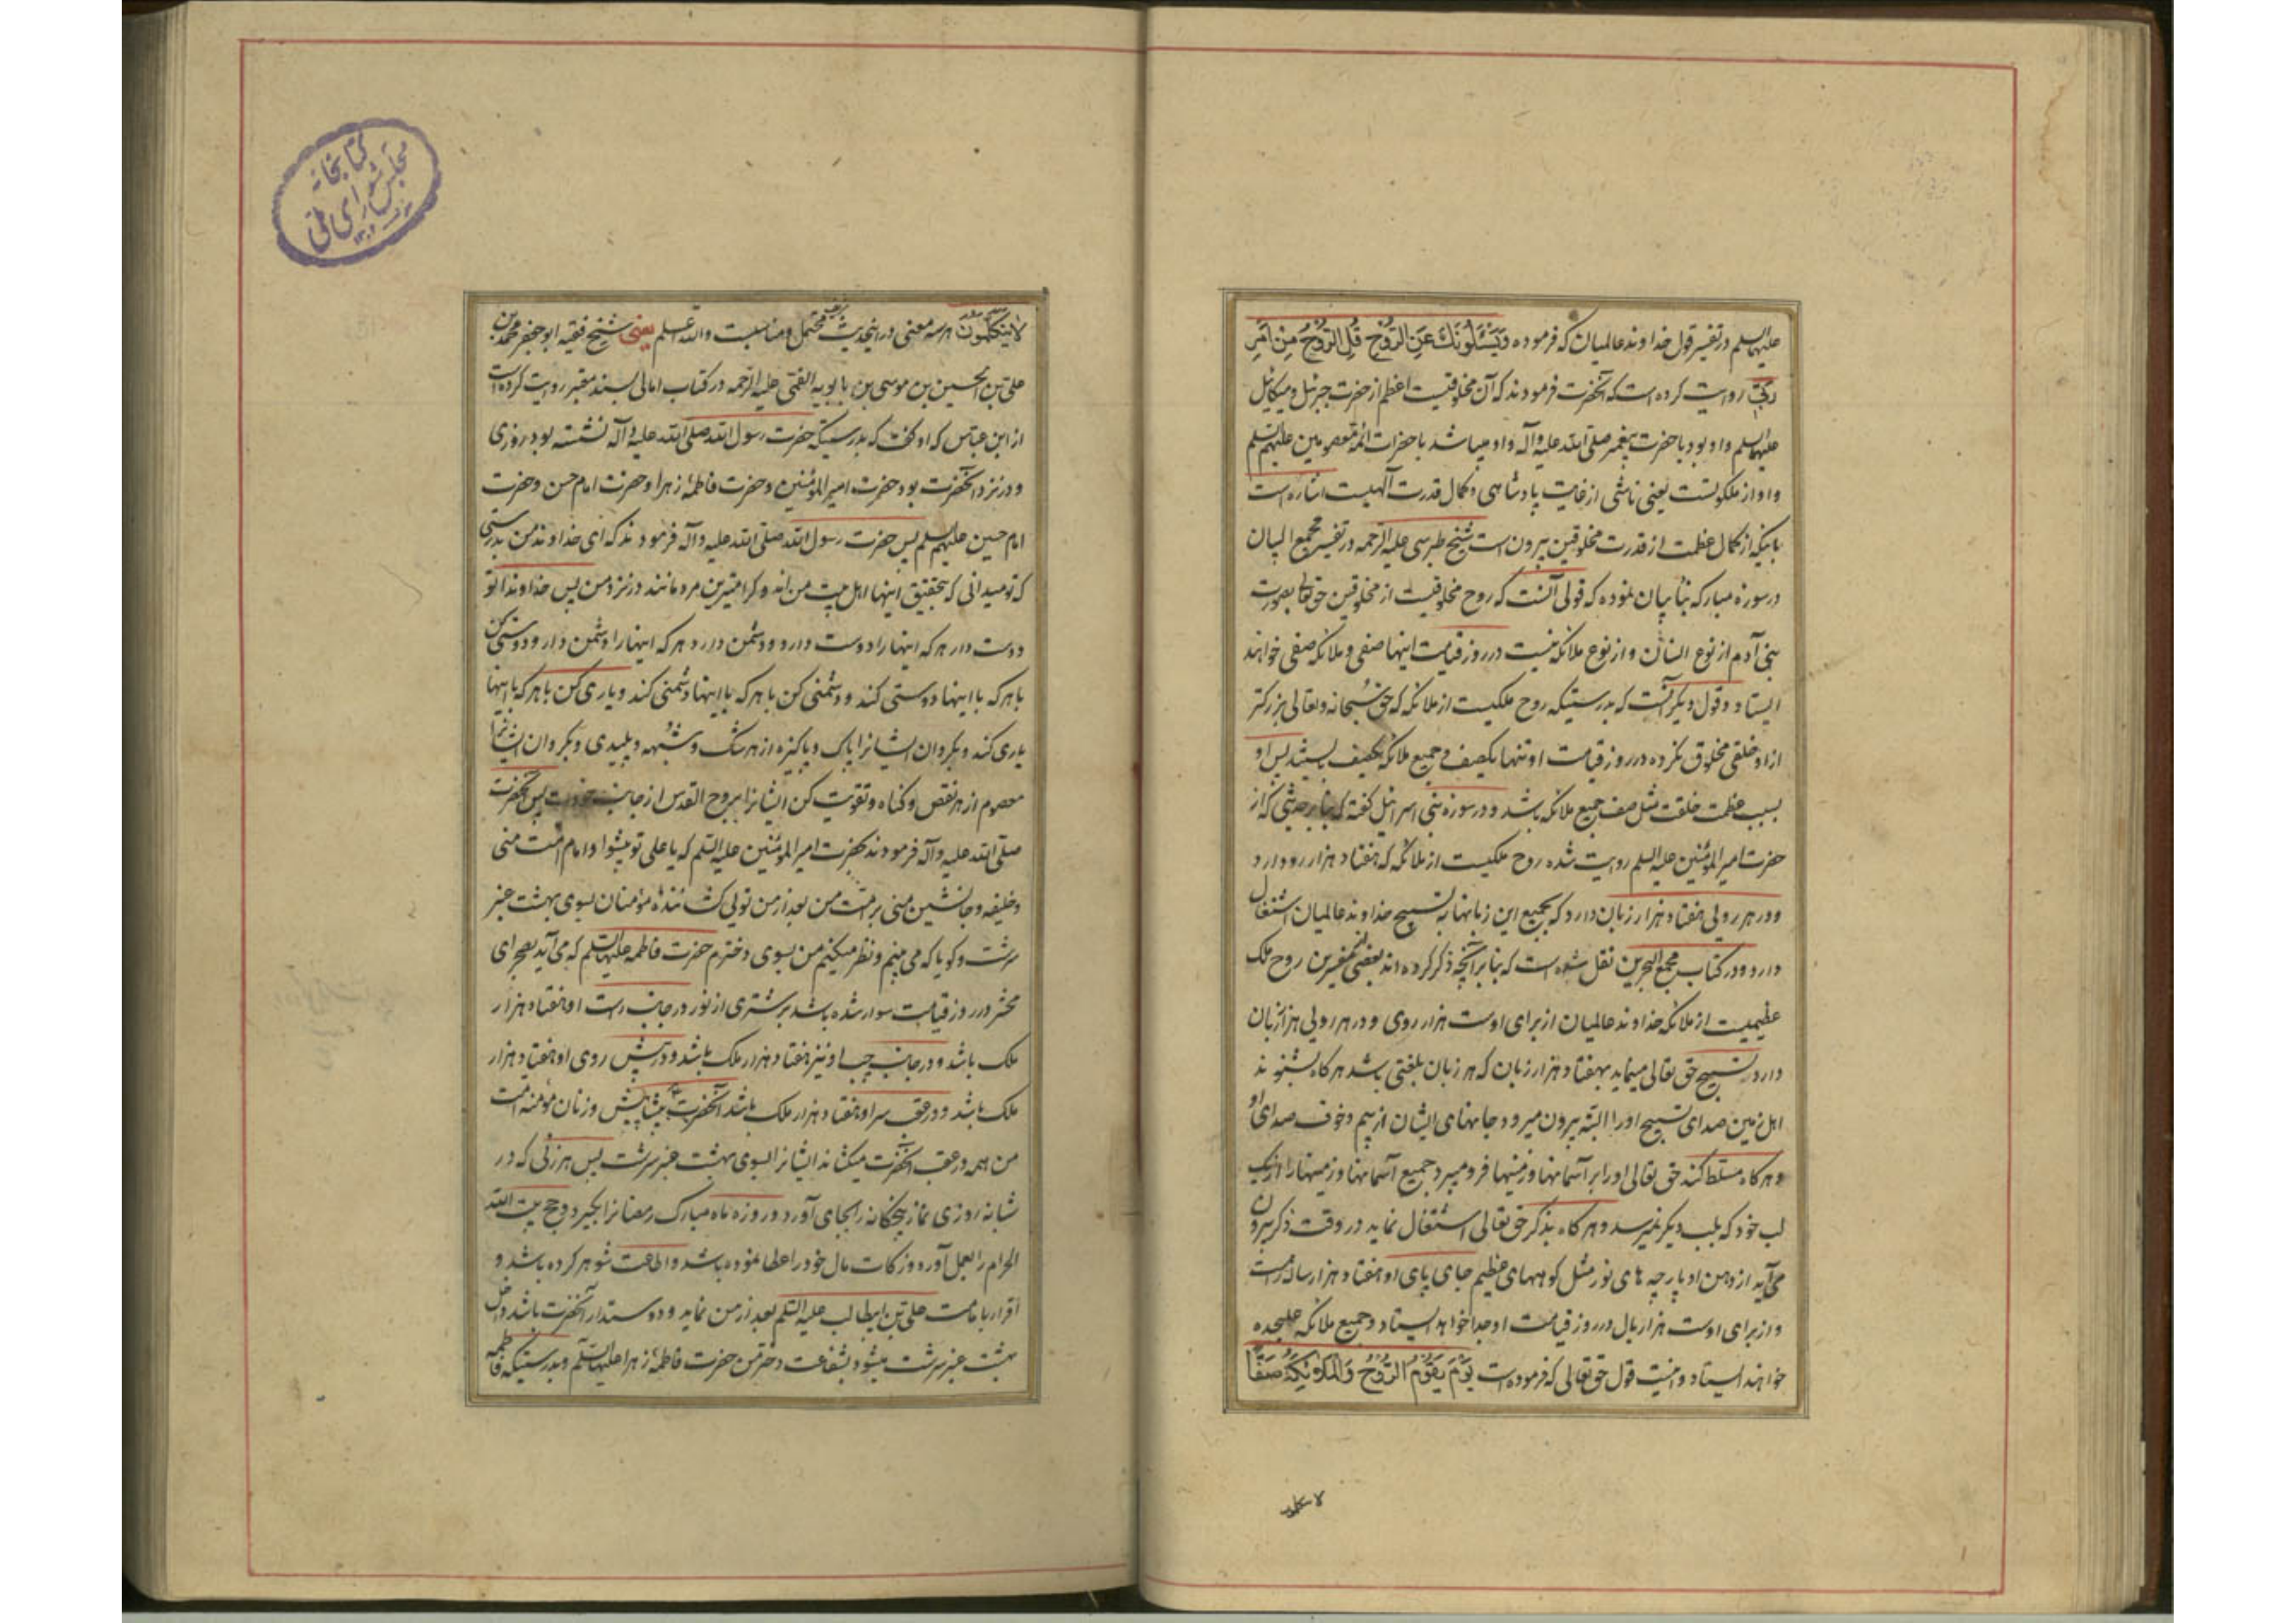 علیهما السلم در تفسیر قول خداوند عالمیان که فرموده وَیَسْئَلُونَكَ عَنِ الرُّوحِ قُلِ الرُّوحُ مِنْ اَمْرِ
رَبّی روایت کرده است که آنحضرت فرمودند که آن مخلوقیست اعظم از حضرت جبرئیل و میکائیل
علیهما السلم و او بود با حضرت پیغمبر صلی الله علیه و آله و او میباشد با حضرات ائمه معصومین علیهم السلم
و او از ملکوتست یعنی ناشی از غایت پادشاهی و کمال قدرت آلهیست اشاره است
باینکه از کمال عظمت از قدرت مخلوقین بیرون است شیخ طبرسی علیه الرحمه در تفسیر مجمع البیان
در سوره مبارکه نبأ بیان نموده که قولی آنست که روح مخلوقیست از مخلوقین حق تعالی بصورت
بنی آدم از نوع انسان و از نوع ملائکه نیست در روز قیامت اینها صفی و ملائکه صفی خواهند
ایستاد و قول دیگر آنست که بدرستیکه روح ملکیست از ملائکه که حق سبحانه و تعالی بزرکتر
از او خلقی مخلوق نکرده در روز قیامت او تنها یکصف و جمیع ملائکه یکصف بایستند پس او
بسبب عظمت خلقت مثل صف جمیع ملائکه باشد و در سوره بنی اسرائیل کفته که بنا بر حدیثی که از
حضرت امیر المؤمنین علیه السلم روایت شده روح ملکیست از ملائکه که هفتاد هزار رو دارد
و در هر روئی هفتاد هزار زبان دارد که بجمیع این زبانها به تسبیح خداوند عالمیان اشتغال
دارد و در کتاب مجمع البحرین نقل شده است که بنا بر آنچه ذکر کرده اند بعضی مفسرین روح ملک
عظیمیست از ملائکه خداوند عالمیان از برای اوست هزار روی و در هر روئی هزار زبان
دارد تسبیح حق تعالی مینماید بهفتاد هزار زبان که هر زبان بلغتی باشد هر کاه بشنوند
اهل زمین صدای تسبیح او را البته بیرون میرود جانهای ایشان از بیم و خوف صدای او
و هر کاه مسلط کند حق تعالی او را بر آسمانها و زمینها فرو میبرد جمیع آسمانها و زمینها را از یک
لب خود که بلب دیگر نمیرسد و هر کاه بذکر حق تعالی اشتغال نماید در وقت ذکر بیرون
می آید از دهن او پارچه های نور مثل کوههای عظیم جای پای او هفتاد هزار ساله راهست
و از برای اوست هزار بال در روز قیامت او جدا خواهد ایستاد و جمیع ملائکه علیحده
خواهند ایستاد و اینست قول حق تعالی که فرموده است یَوْمَ یَقُومُ الرُّوحُ وَالْمَلٰئِکَةُ صَفًّا
لایتکلمون
کتابخانه
مجلس شورای ملی
لایَتَکَلَّمُونَ هر سه معنی در اینحدیث محتمل و مناسبست والله اعلم یعنی شیخ فقیه ابو جعفر محمد بن
علی بن الحسین بن موسی بن بابویه القمی علیه الرحمه در کتاب امالی بسند معتبر روایت کرده است
از ابن عباس که او کفت که بدرستیکه حضرت رسول الله صلی الله علیه و آله نشسته بود روزی
و در نزد آنحضرت بود حضرت امیر المؤمنین و حضرت فاطمه زهرا و حضرت امام حسن و حضرت
امام حسین علیهم السلم پس حضرت رسول الله صلی الله علیه و آله فرمودند که ای خداوند من بدرستی
که تو میدانی که بتحقیق اینها اهل بیت من اند و کرامیترین مردمانند در نزد من پس خداوندا تو
دوست دار هر که اینها را دوست دارد و دشمن دار هر که اینها را دشمن دارد و دوستی کن
با هر که با اینها دوستی کند و دشمنی کن با هر که با اینها دشمنی کند و یاری کن با هر که با اینها
یاری کند و بکردان ایشانرا پاک و پاکیزه از هر شک و شبهه و پلیدی و بکردان ایشانرا
معصوم از هر نقص و کناه و تقویت کن ایشانرا بروح القدس از جانب خودت پس آنحضرت
صلی الله علیه و آله فرمودند بحضرت امیر المؤمنین علیه السلم که یا علی تو پیشوا و امام امت منی
و خلیفه و جانشین منی بر امت من بعد از من توئی کشاننده مؤمنان بسوی بهشت عنبر
سرشت و کویا که می بینم و نظر میکنم من بسوی دخترم حضرت فاطمه علیها السلم که می آید بصحرای
محشر در روز قیامت سوار شده باشد بر شتری از نور در جانب راست او هفتاد هزار
ملک باشد و در جانب چپ او نیز هفتاد هزار ملک باشد و در پیش روی او هفتاد هزار
ملک باشد و در عقب سر او هفتاد هزار ملک باشد آنحضرت پیشاپیش و زنان مؤمنه امت
من همه در عقب آنحضرت میکشاند ایشانرا بسوی بهشت عنبر سرشت پس هر زنی که در
شبانه روزی نماز پنجکانه را بجای آورد و روزه ماه مبارک رمضانرا بکیرد و حج بیت الله
الحرام را بعمل آورد و زکات مال خود را عطا نموده باشد و اطاعت شوهر کرده باشد و
اقرار بامامت علی بن ابیطالب علیه السلم بعد از من نماید و دوستدار آنحضرت باشد داخل
بهشت عنبر سرشت میشود بشفاعت دختر من حضرت فاطمه زهرا علیها السلم و بدرستیکه فاطمه